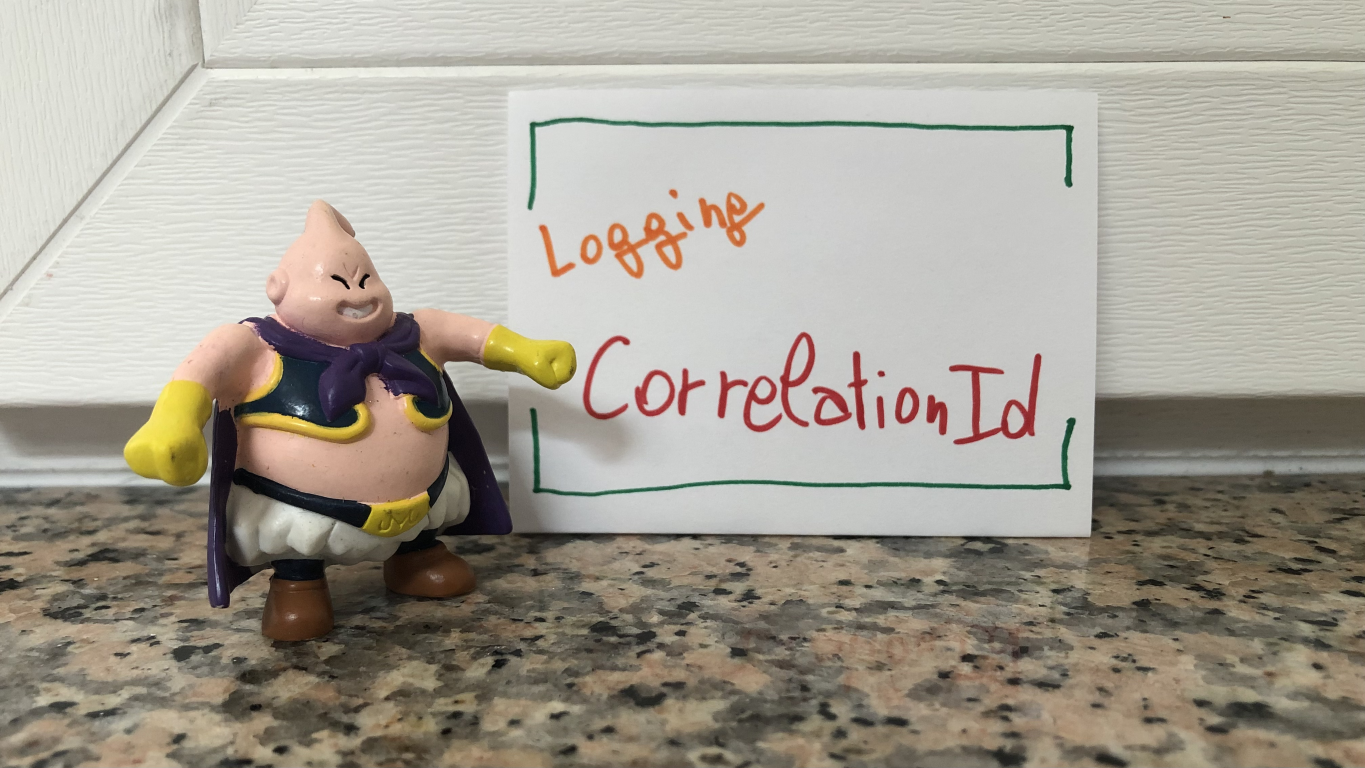 Logging
CorrelationId
M